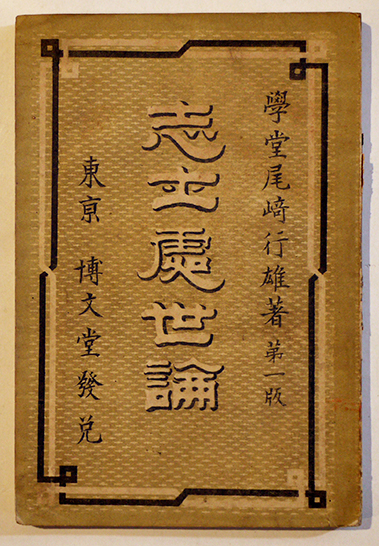 學堂尾﨑行雄著 第一版
志士處世論
東京 博文堂發兌